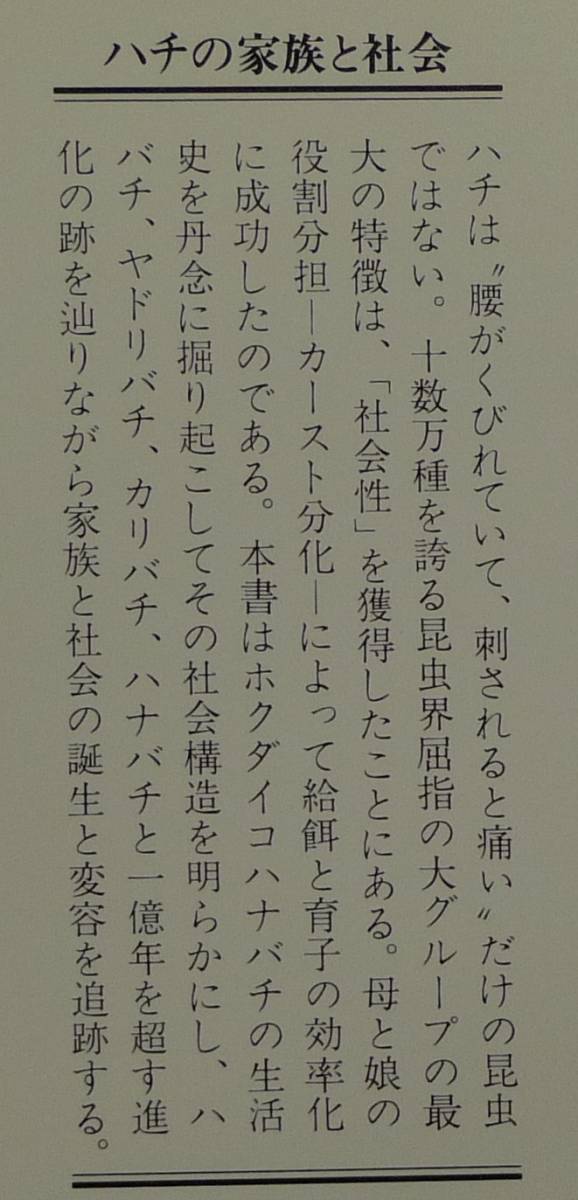 ハチの家族と社会
ハチは〝腰がくびれていて、刺されると痛い〟だけの昆虫
ではない。十数万種を誇る昆虫界屈指の大グループの最
大の特徴は、「社会性」を獲得したことにある。母と娘の
役割分担―カースト分化―によって給餌と育子の効率化
に成功したのである。本書はホクダイコハナバチの生活
史を丹念に掘り起こしてその社会構造を明らかにし、ハ
バチ、ヤドリバチ、カリバチ、ハナバチと一億年を超す進
化の跡を辿りながら家族と社会の誕生と変容を追跡する。